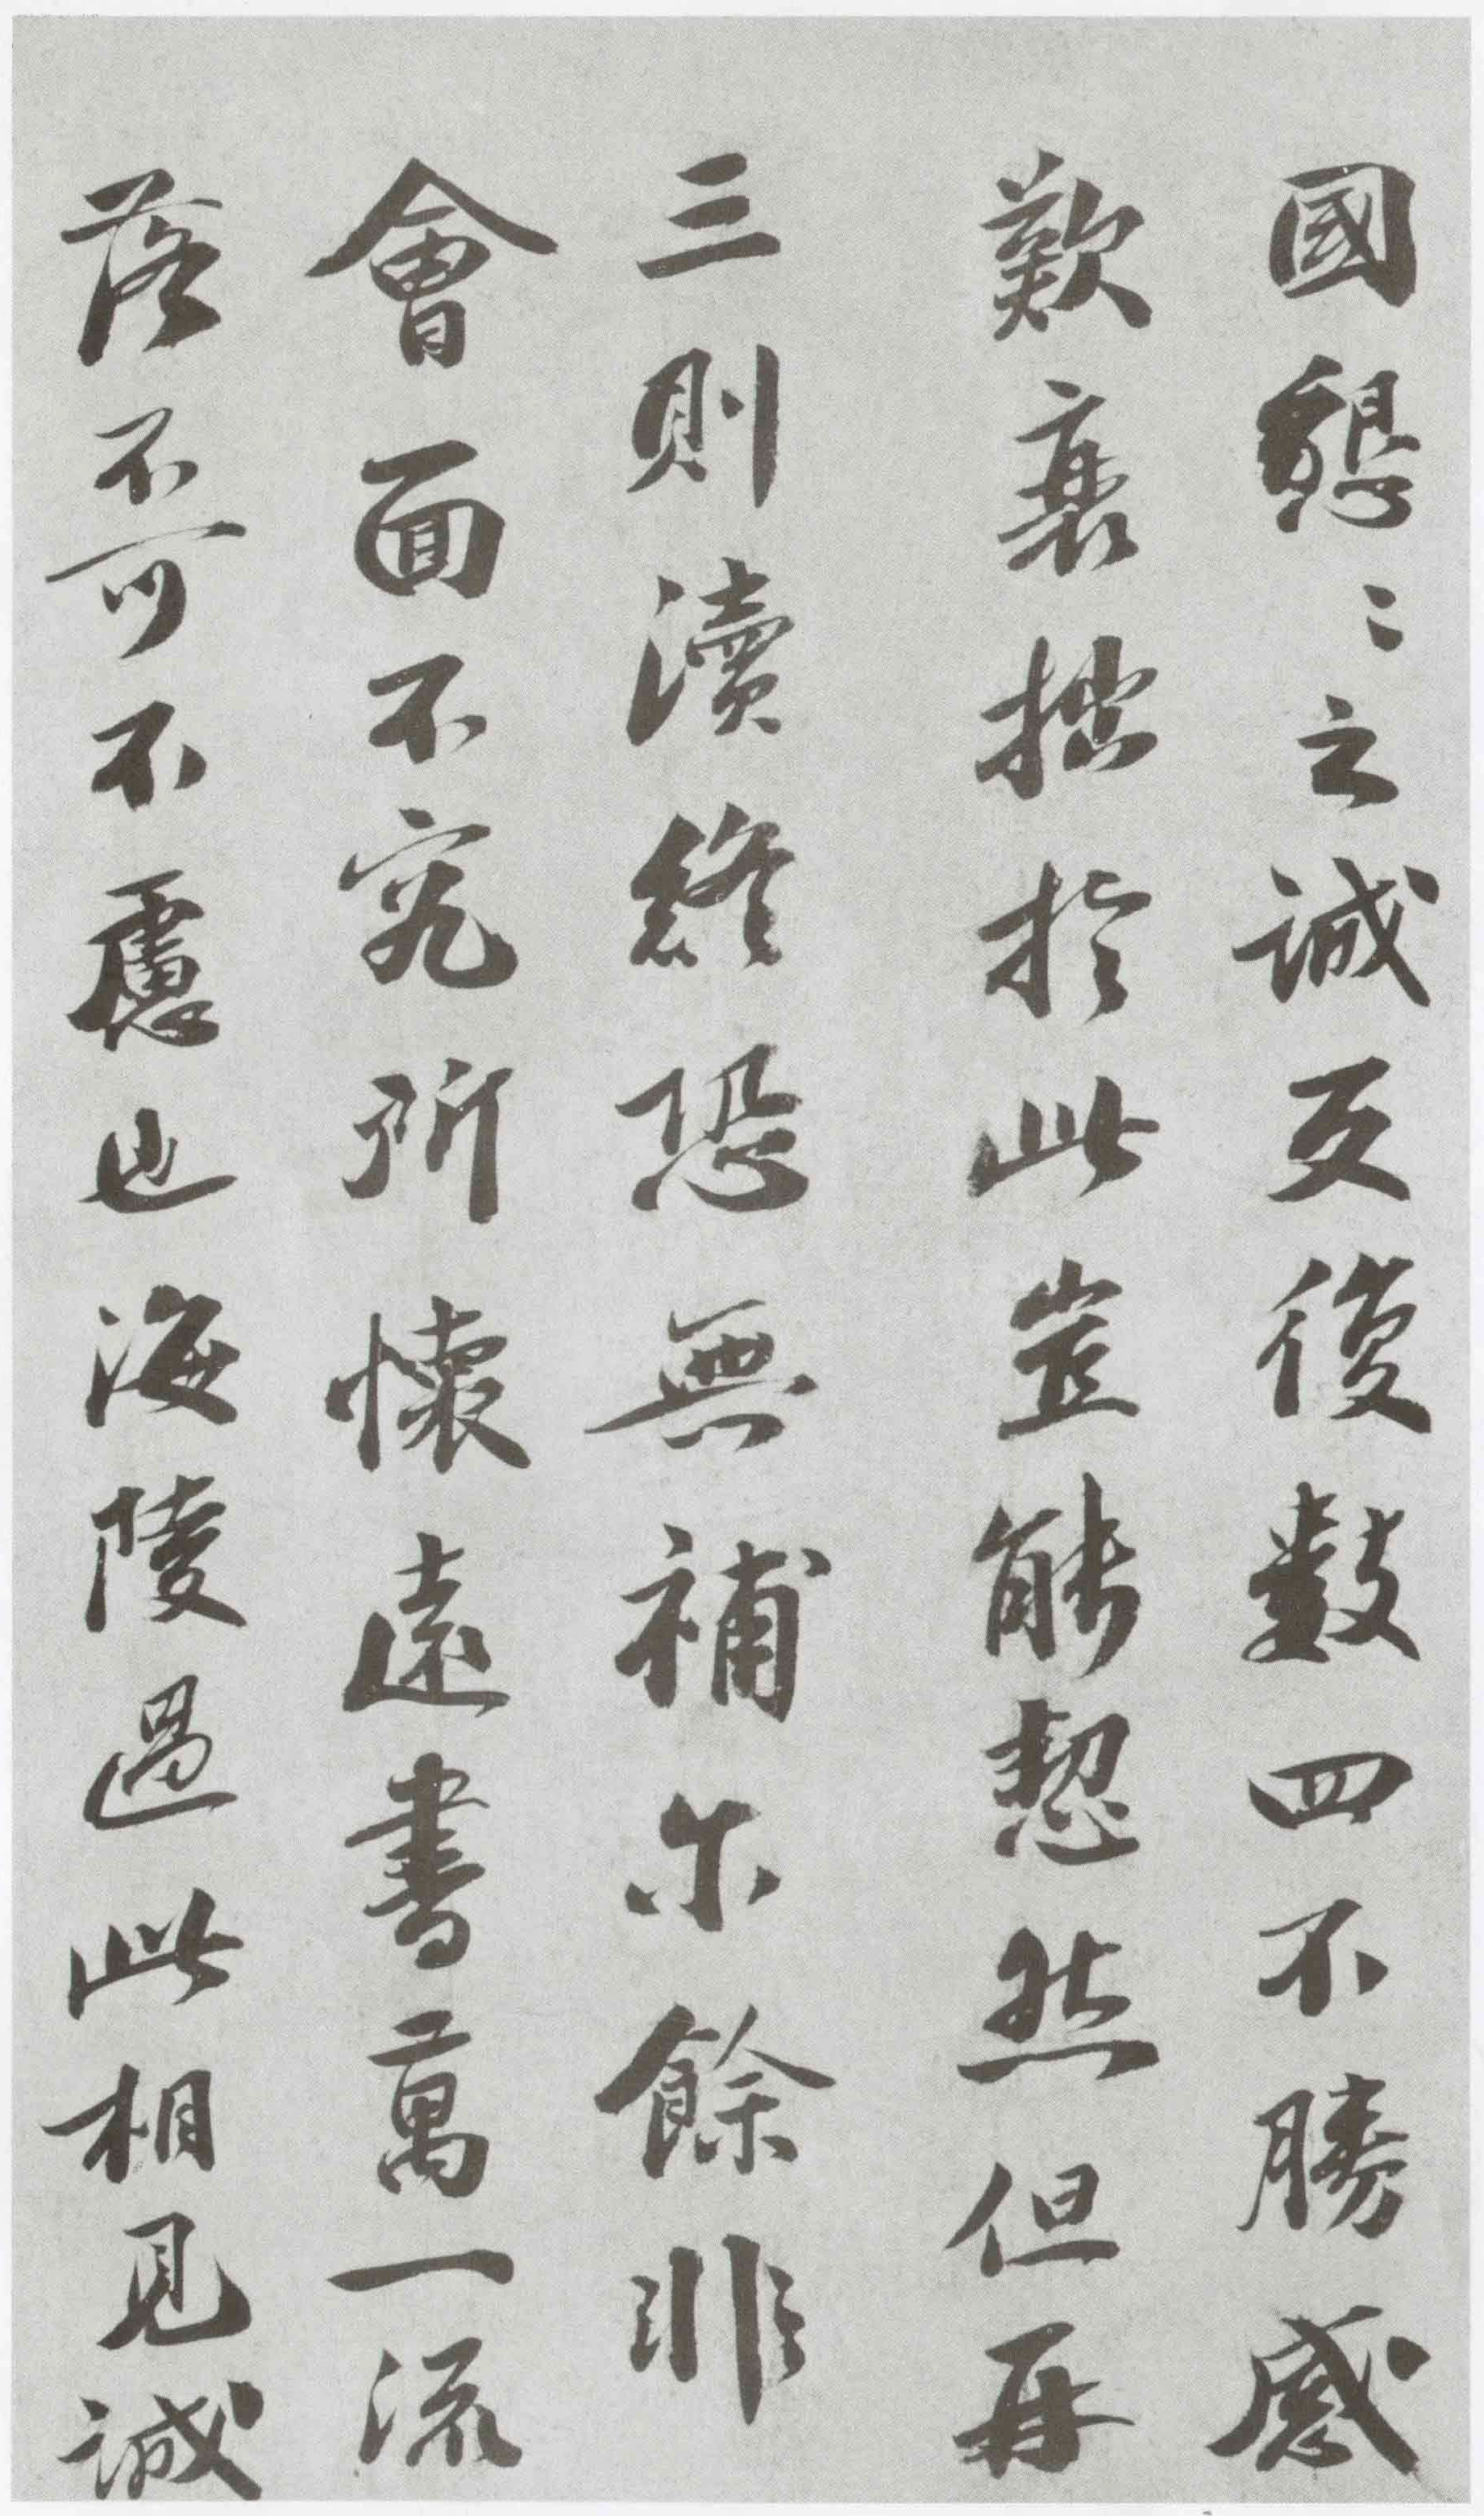 國懇〻之誠反復數四不勝感
歎衰拙於此豈能契然但再
三則瀆終恐無補尓餘非
會面不究所懷遠書萬一流
落不可不慮也海陵過此相見誠